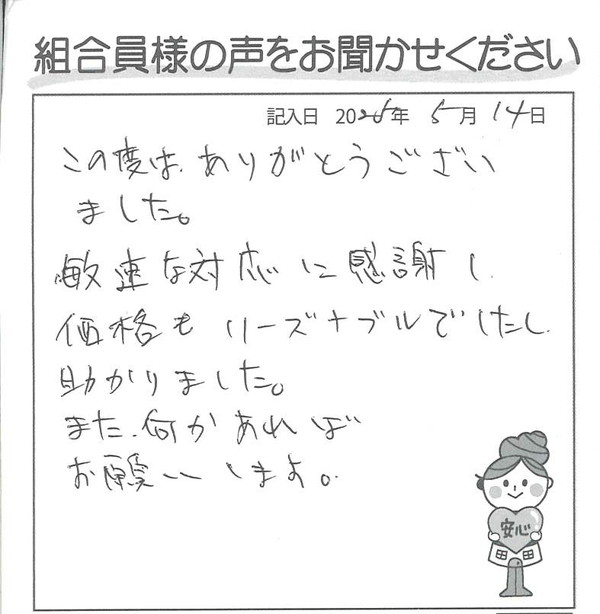 組合員様の声をお聞かせください
記入日 2025年 5月 14日
この度は、ありがとうござい
ました。
敏速な対応に感謝し、
価格もリーズナブルでしたし、
助かりました。
また、何かあれば
お願いします。
安心